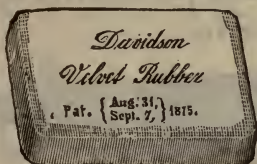 Davidson
Velvet Rubber
Pat. { Aug. 31, Sept. 7, } 1875.